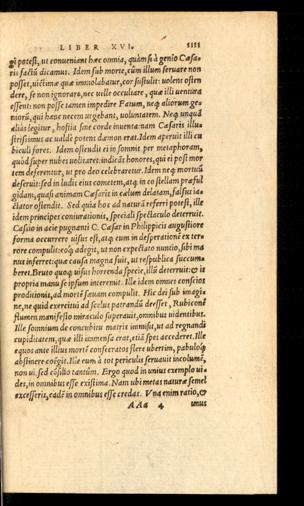 LIBER XVI. 1111
gi potest, ut conueniant hæc omnia, quàm si à genio Cæsa-
ris factũ dicamus. Idem sub morte, cùm illum seruare non
posset, uictimæ quæ immolabatur, cor sustulit: uolens osten
dere, se non ignorare, nec uelle occultare, quæ illi uentura
essent: non posse tamen impedire Fatum, neq; aliorum ge-
niorũ, qui hanc necem urgebant, uoluntatem. Neq; unquã
aliàs legitur, hostia sine corde inuenta: nam Cæsaris illu-
strissimus ac ualde potens dæmon erat. Idem aperuit illi cu
biculi fores. Idem ostendit ei in somnis per metaphoram,
quòd super nubes uolitaret: indicãs honores, qui ei post mor
tem deferentur, ut pro deo celebraretur. Idem neq; mortuũ
deseruit: sed in ludis eius cometem, atq; in eo stellam præful
gidam, quasi animam Cæsaris in cælum delatam, falsus ia-
ctator ostendit. Sed quia hoc ad naturã referri potest, ille
idem principes coniurationis, speciali spectaculo deterruit.
Cassio in acie pugnanti C. Cæsar in Philippicis augustiore
forma occurrere uisus est, atq; eum in desperationẽ ex ter-
rore compulit: eoq; adegit, ut non expectato nuncio, sibi ma
nus inferret: quæ causa magna fuit, ut respublica succum­
beret. Bruto quoq; uisus horrenda specie, illũ deterruit: & is
propria manu se ipsum interemit. Ille idem omnes conscios
proditionis, ad mortẽ sæuam compulit. Hic dei sub imagi-
ne, ne quid exercitui ad scelus patrandũ deesset, Rubiconẽ
flumen manifesto miraculo superauit, omnibus uidentibus.
Ille somnium de concubitu matris immisit, ut ad regnandi
cupiditatem, quæ illi immensa erat, etiã spei accederet. Ille
equos ante illius mortẽ consecratos flere ubertim, pabuloq;
abstinere coëgit. Ille eum à tot periculis seruauit incolumẽ,
non ui, sed cõsilio tantùm. Ergo quod in unius exemplo ui-
des, in omnibus esse existima. Nam ubi metas naturæ semel
excesseris, eadẽ in omnibus esse credas. Vna enim ratio, &
AAa 4 unus